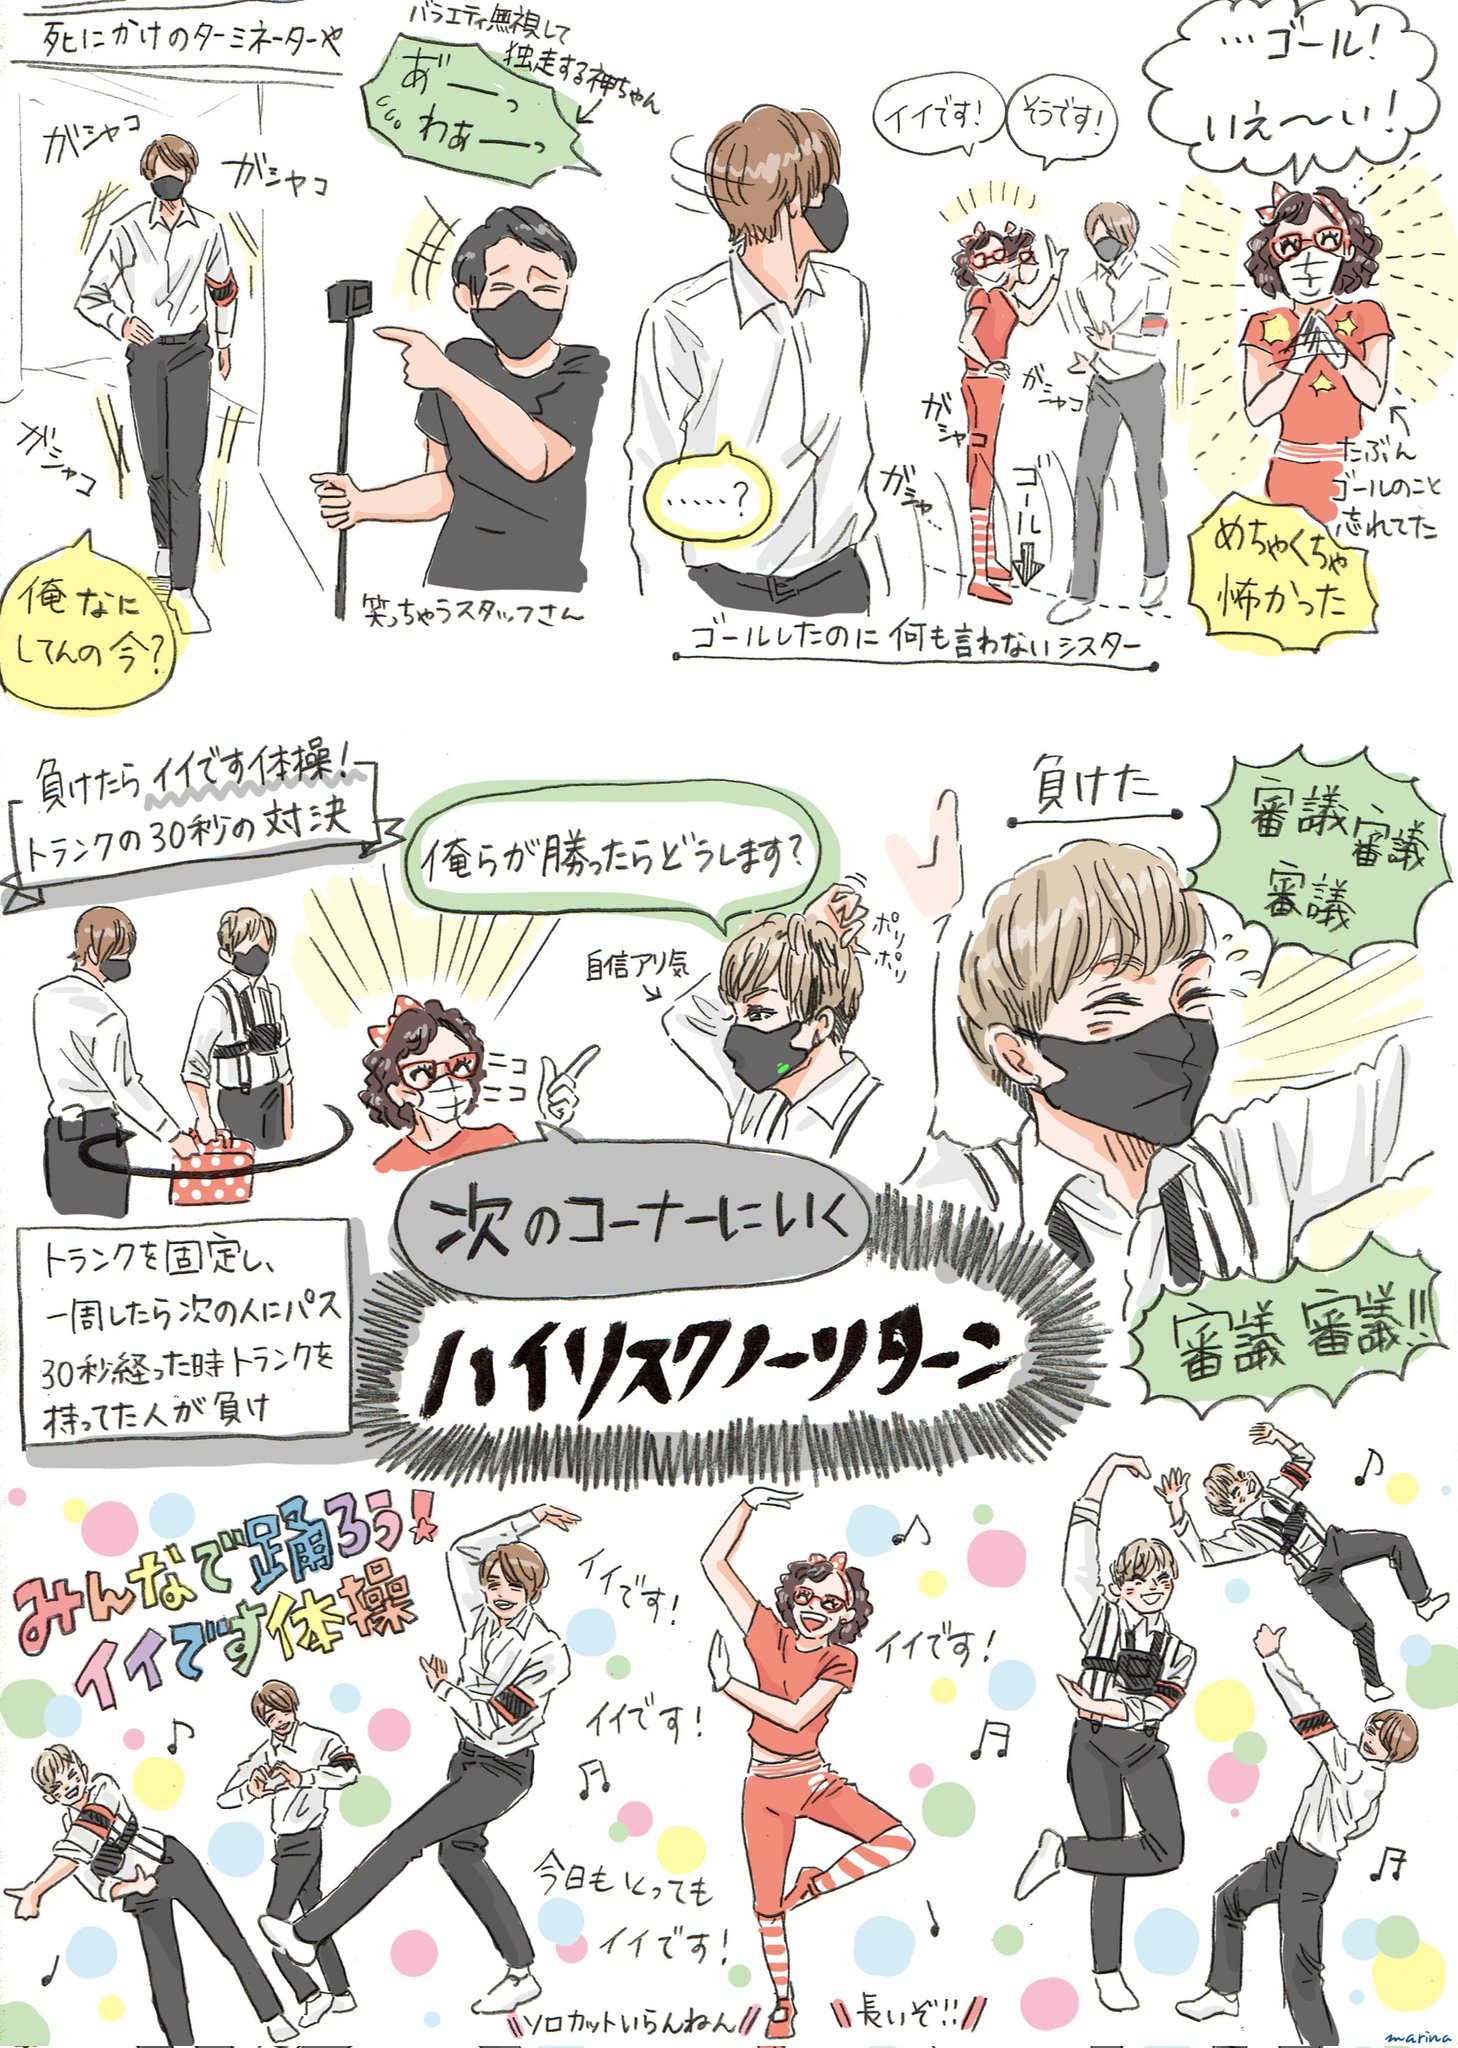 死にかけのターミネーターや
ガシャコ
ガシャコ
ガシャコ
俺なに
してんの今?
バラエティ無視して
独走する神ちゃん
あ゛ーっ
わぁーっ
笑っちゃうスタッフさん
……?
イイです!
そうです!
ガシャコ
ガシャコ
ガシャ…
ゴール
ゴールしたのに何も言わないシスター
…ゴール!
いぇ〜い!
たぶん
ゴールのこと
忘れてた
めちゃくちゃ
怖かった
負けたらイイです体操!
トランクの30秒の対決
俺らが勝ったらどうします?
自信アリ気
ポリ
ポリ
ニコ
ニコ
次のコーナーにいく
ハイリスクノーリターン
トランクを固定し、
一周したら次の人にパス
30秒経った時トランクを
持ってた人が負け
負けた
審議
審議
審議
審議 審議!!
みんなで踊ろう!
イイです体操
イイです!
イイです!
イイです!
今日もとっても
イイです!
ソロカットいらんねん
長いぞ!!
marina